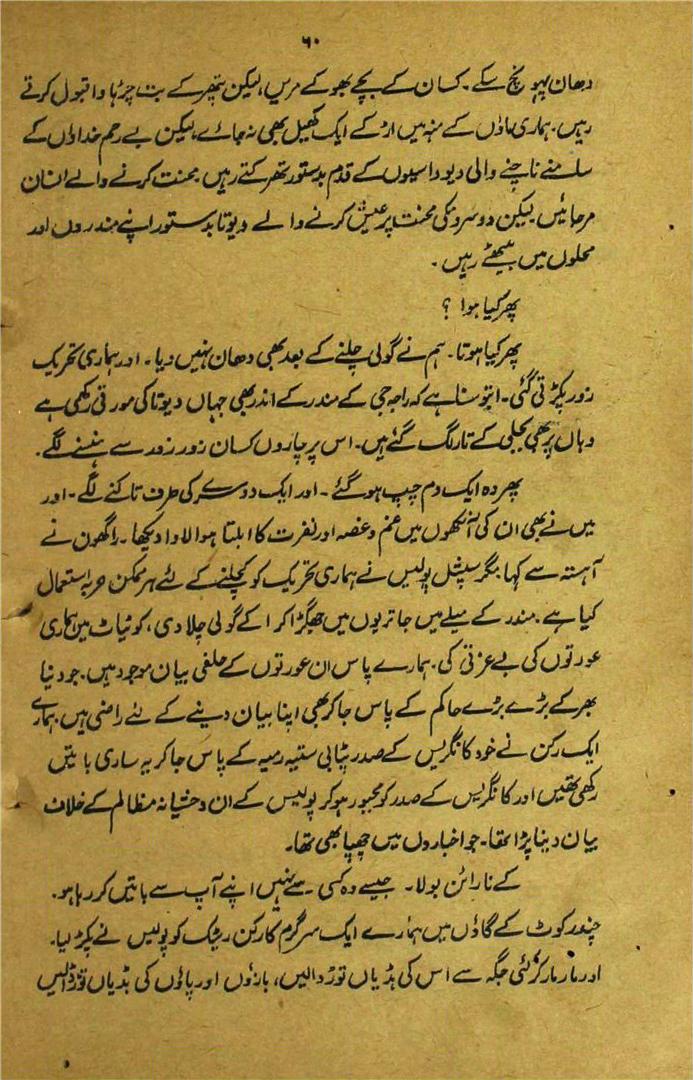 ۶۰
دھان پہونچ سکے۔ کسان کے بچے بھوکے مریں، لیکن پتھر کے بت چڑھاوا قبول کرتے
رہیں۔ ہماری ماؤں کے منہ میں اڑ کے ایک کھیل بھی نہ جائے، لیکن بے رحم خداؤں کے
سامنے ناچنے والی دیوداسیوں کے قدم بدستور تھرکتے رہیں۔ محنت کرنے والے انسان
مر جائیں۔ لیکن دوسروں کی محنت پر عیش کرنے والے دیوتا بدستور اپنے مندروں اور
محلوں میں بیٹھے رہیں۔
پھر کیا ہوا ؟
پھر کیا ہوتا۔ ہم نے گولی چلنے کے بعد بھی دھان نہیں دیا۔ اور ہماری تحریک
زور پکڑتی گئی۔ اب تو سنا ہے کہ راجہ جی کے مندر کے اندر بھی جہاں دیوتا کی مورتی رکھی ہے
وہاں پر بھی بجلی کے تار لگ گئے ہیں۔ اس پر چاروں کسان زور زور سے ہنسنے لگے۔
پھر وہ ایک دم چپ ہو گئے۔ اور ایک دوسرے کی طرف تاکنے لگے۔ اور
میں نے بھی ان کی آنکھوں میں غم و غصہ اور نفرت کا ابلتا ہوا لاوا دیکھا۔ راگھون نے
آہستہ سے کہا۔ مگر سپیشل پولیس نے ہماری تحریک کو کچلنے کے لئے ہر ممکن حربہ استعمال
کیا ہے۔ مندر کے میلے میں جاتریوں میں جھگڑا کرا کے گولی چلا دی، کوٹیاٹ میں ہماری
عورتوں کی بے عزتی کی۔ ہمارے پاس ان عورتوں کے حلفی بیان موجود ہیں۔ جو دنیا
بھر کے بڑے بڑے حاکم کے پاس جا کر بھی اپنا بیان دینے کے لئے راضی ہیں۔ ہمارے
ایک رکن نے خود کانگریس کے صدر پٹابی ستیہ رمیہ کے پاس جا کر یہ ساری باتیں
رکھی تھیں اور کانگریس کے صدر کو مجبور ہو کر پولیس کے ان وحشیانہ مظالم کے خلاف
بیان دینا پڑا تھا۔ جو اخباروں میں چھپا بھی تھا۔
کے نارائن بولا۔ جیسے وہ کسی سے نہیں اپنے آپ سے باتیں کر رہا ہو۔
چندر کوٹ کے گاؤں میں ہمارے ایک سرگرم کارکن ریٹک کو پولیس نے پکڑ لیا۔
اور مار مار کر کئی جگہ سے اس کی ہڈیاں توڑ ڈالیں، بازوں اور پاؤں کی ہڈیاں توڑ ڈالیں